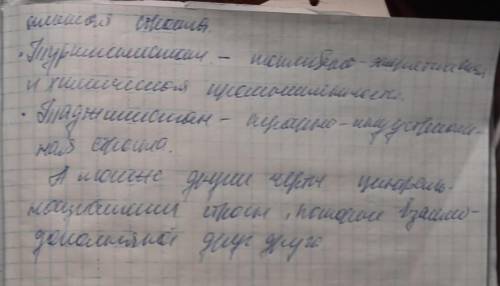 страны.
• Туркменистан – топливно-энергетическая
и химическая промышленность.
• Таджикистан – аграрно-индустриаль-
ная страна.
А также другие черты централь-
ноазиатских стран, которые взаимо-
дополняют друг друга